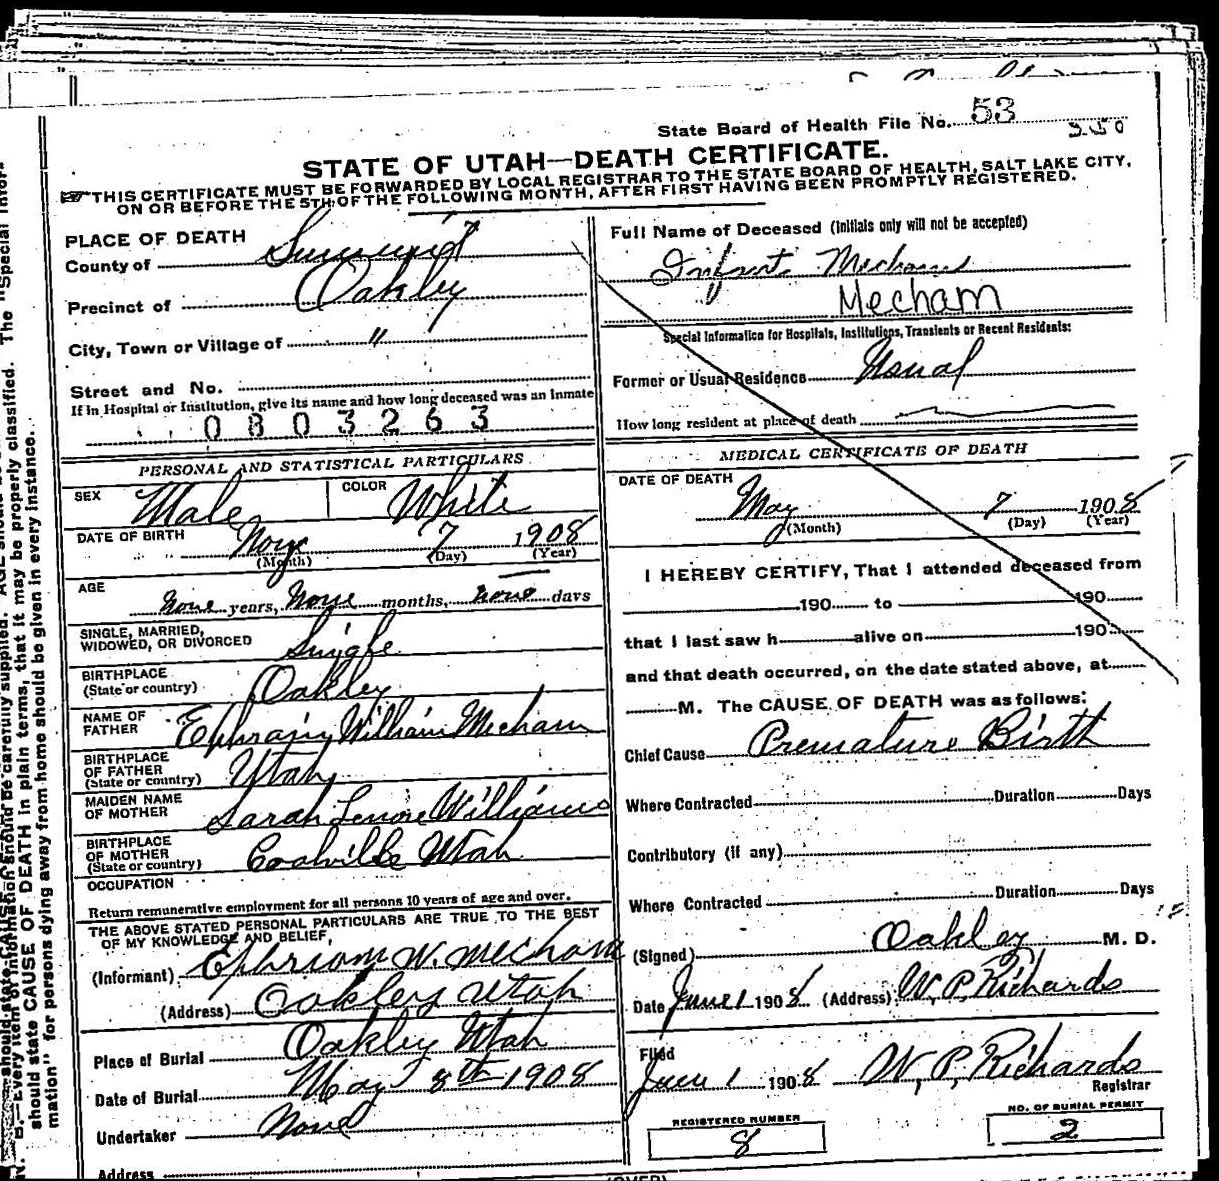 State Board of Health File No. 53
350
STATE OF UTAH—DEATH CERTIFICATE.
THIS CERTIFICATE MUST BE FORWARDED BY LOCAL REGISTRAR TO THE STATE BOARD OF HEALTH, SALT LAKE CITY,
ON OR BEFORE THE 5TH OF THE FOLLOWING MONTH, AFTER FIRST HAVING BEEN PROMPTLY REGISTERED.
PLACE OF DEATH
County of Summit
Precinct of Oakley
City, Town or Village of "
Street and No.
If in Hospital or Institution, give its name and how long deceased was an Inmate
0803263
PERSONAL AND STATISTICAL PARTICULARS
SEX Male COLOR White
DATE OF BIRTH May 7 1908
(Month) (Day) (Year)
AGE None years, None months, None days
SINGLE, MARRIED,
WIDOWED, OR DIVORCED Single
BIRTHPLACE
(State or country) Oakley
NAME OF
FATHER Ephraim William Mecham
BIRTHPLACE
OF FATHER
(State or country) Utah
MAIDEN NAME
OF MOTHER Sarah Lenore Williams
BIRTHPLACE
OF MOTHER
(State or country) Coalville Utah
OCCUPATION
Return remunerative employment for all persons 10 years of age and over.
THE ABOVE STATED PERSONAL PARTICULARS ARE TRUE TO THE BEST
OF MY KNOWLEDGE AND BELIEF,
(Informant) Ephriam W. Mecham
(Address) Oakley Utah
Place of Burial Oakley Utah
Date of Burial May 8th 1908
Undertaker None
Address
Full Name of Deceased (Initials only will not be accepted)
Infant Mecham
Mecham
Special Information for Hospitals, Institutions, Transients or Recent Residents:
Former or Usual Residence Usual
How long resident at place of death
MEDICAL CERTIFICATE OF DEATH
DATE OF DEATH
May 7 1908
(Month) (Day) (Year)
I HEREBY CERTIFY, That I attended deceased from
190 to 190
that I last saw h alive on 190
and that death occurred, on the date stated above, at
M. The CAUSE OF DEATH was as follows:
Chief Cause Premature Birth
Where Contracted Duration Days
Contributory (if any)
Where Contracted Duration Days
(Signed) Oakley M. D.
Date June 1 1908 (Address) W. P. Richards
Filed
June 1 1908 W. P. Richards
Registrar
REGISTERED NUMBER
8
NO. OF BURIAL PERMIT
2
(OVER)
N. B.—Every item of information should be carefully supplied. AGE should
should state CAUSE OF DEATH in plain terms, that it may be properly classified. The "Special Infor-
mation" for persons dying away from home should be given in every instance.